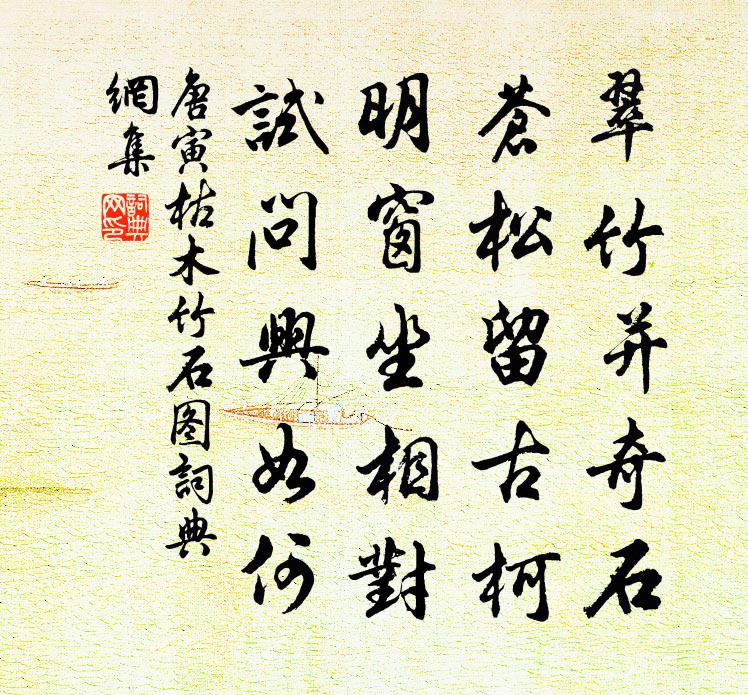 翠竹并奇石
蒼松留古柯
明窗坐相對
試問興如何
唐寅枯木竹石图詞典
網集
詞典
网印